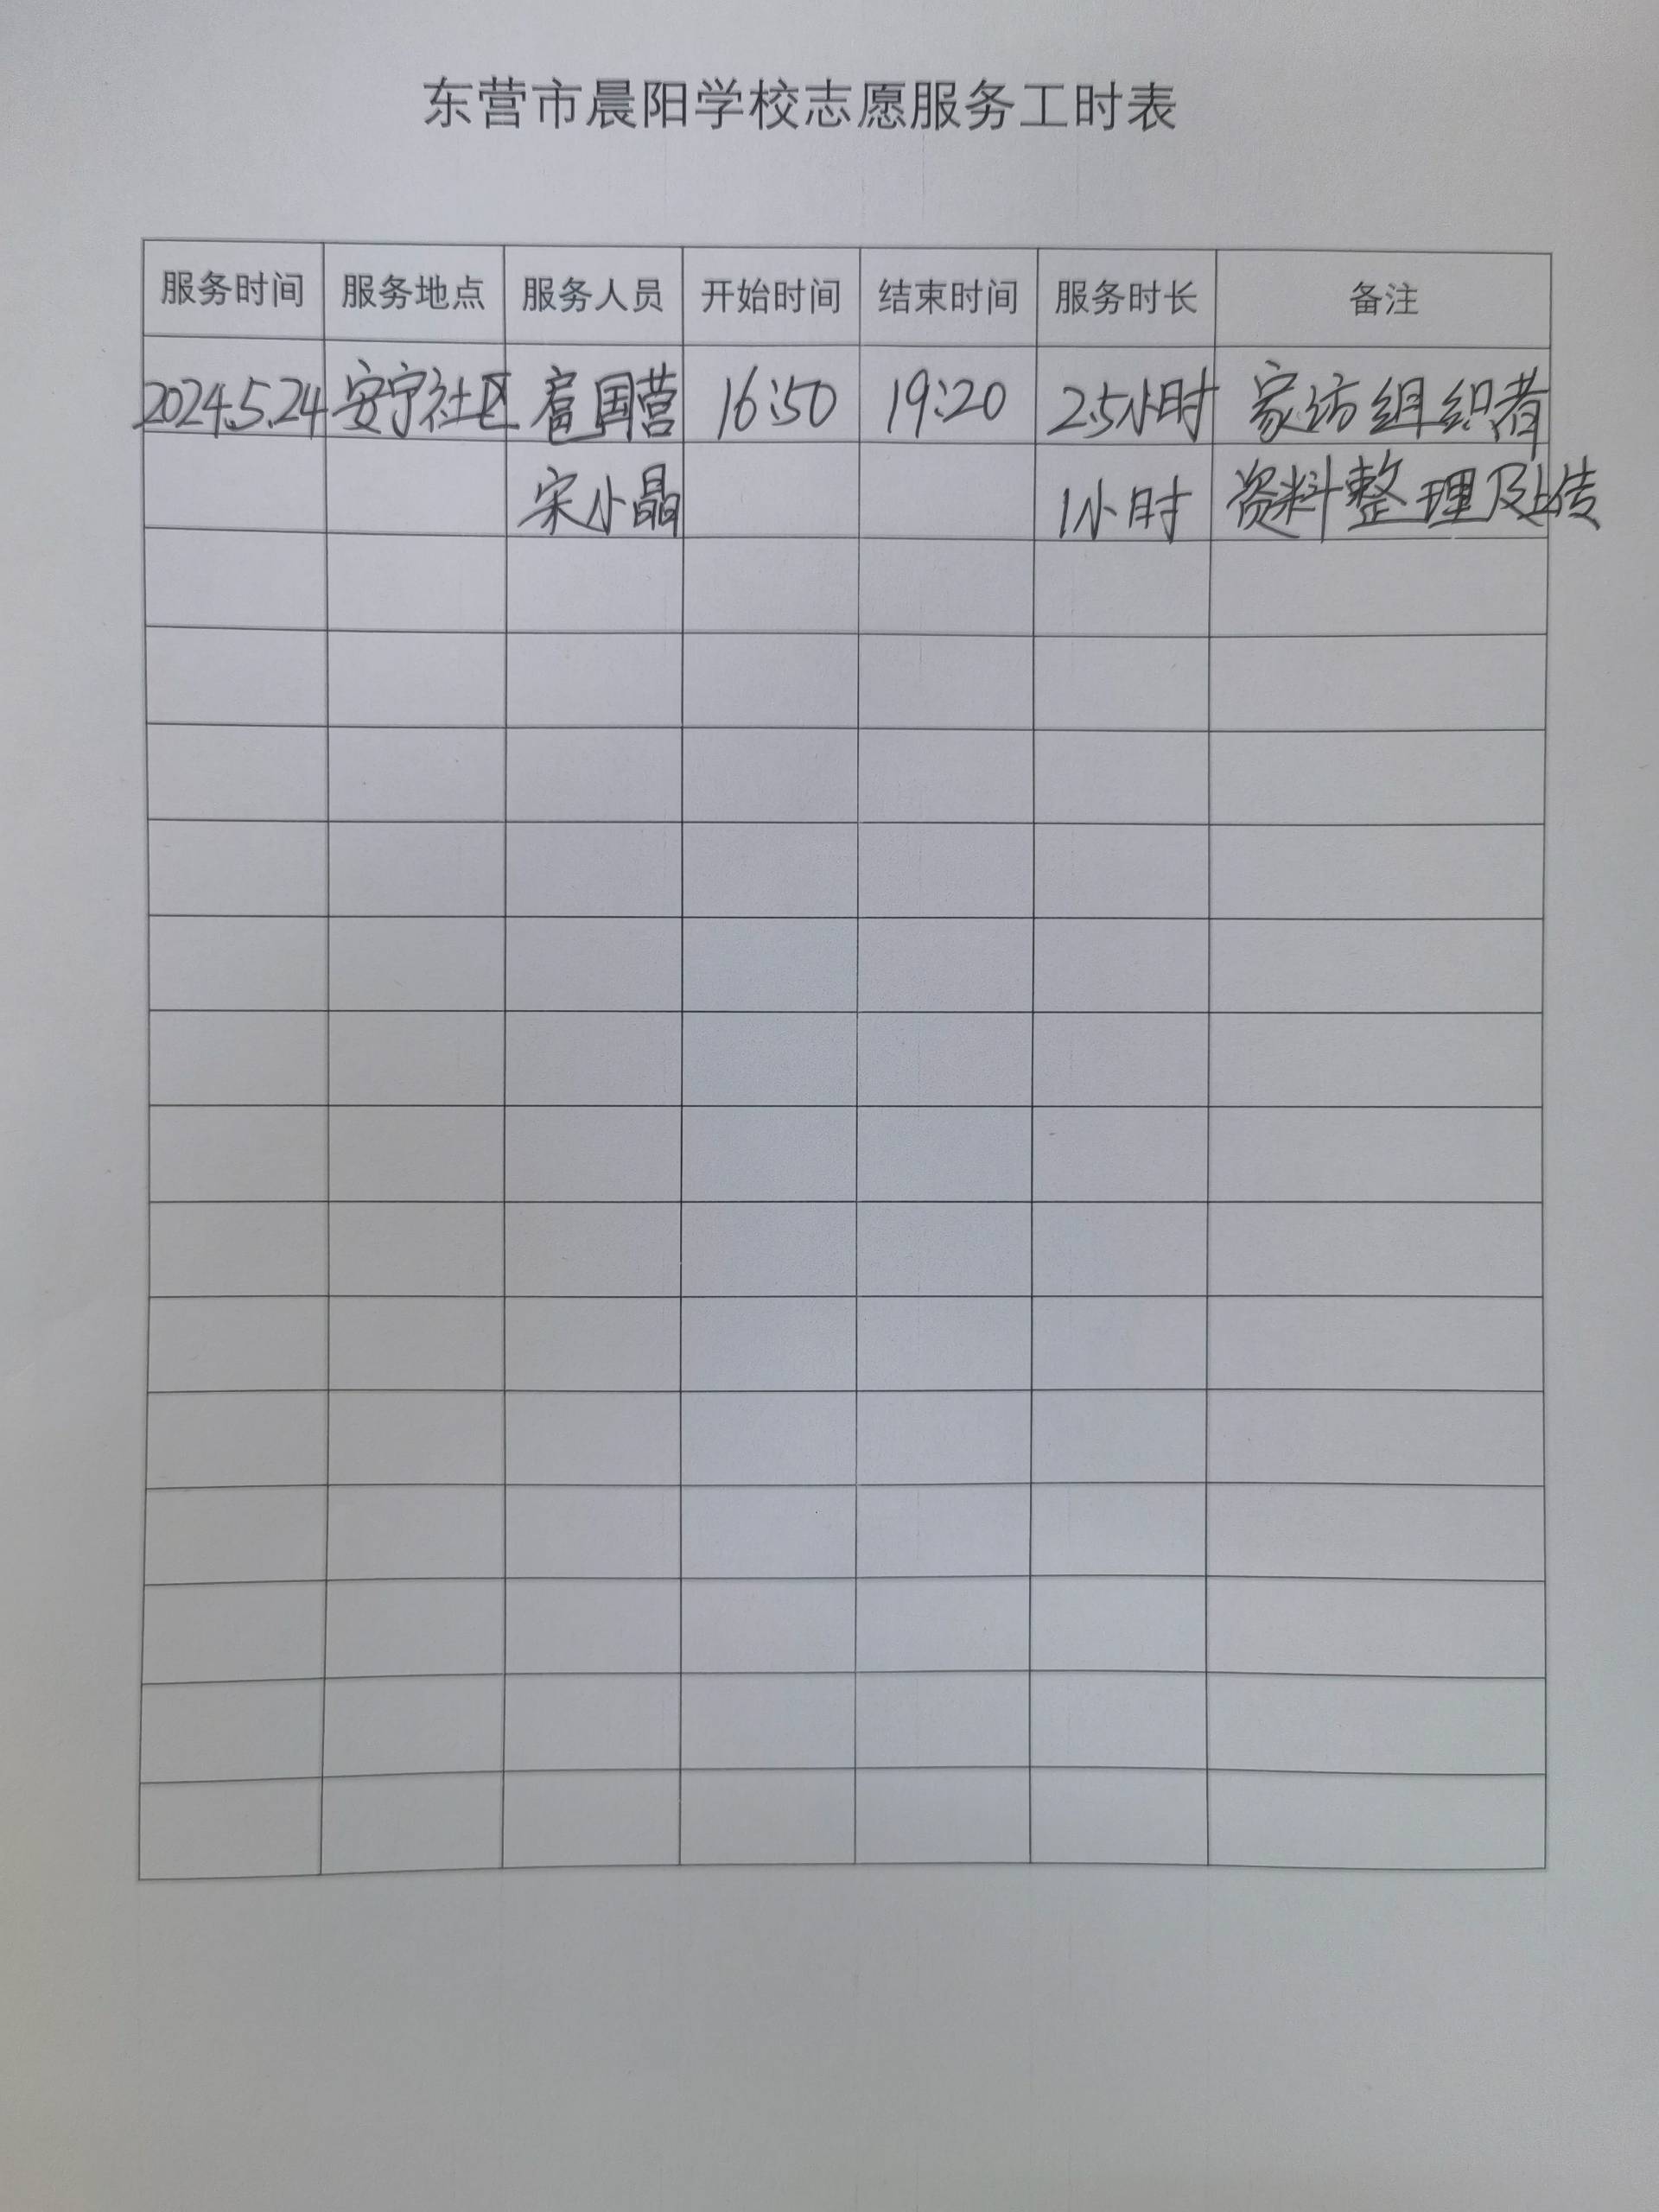 东营市晨阳学校志愿服务工时表
服务时间 服务地点 服务人员 开始时间 结束时间 服务时长 备注
2024.5.24 安宁社区 国营 16:50 19:20 2.5小时 家访组织者
宋小晶 1小时 资料整理及上传